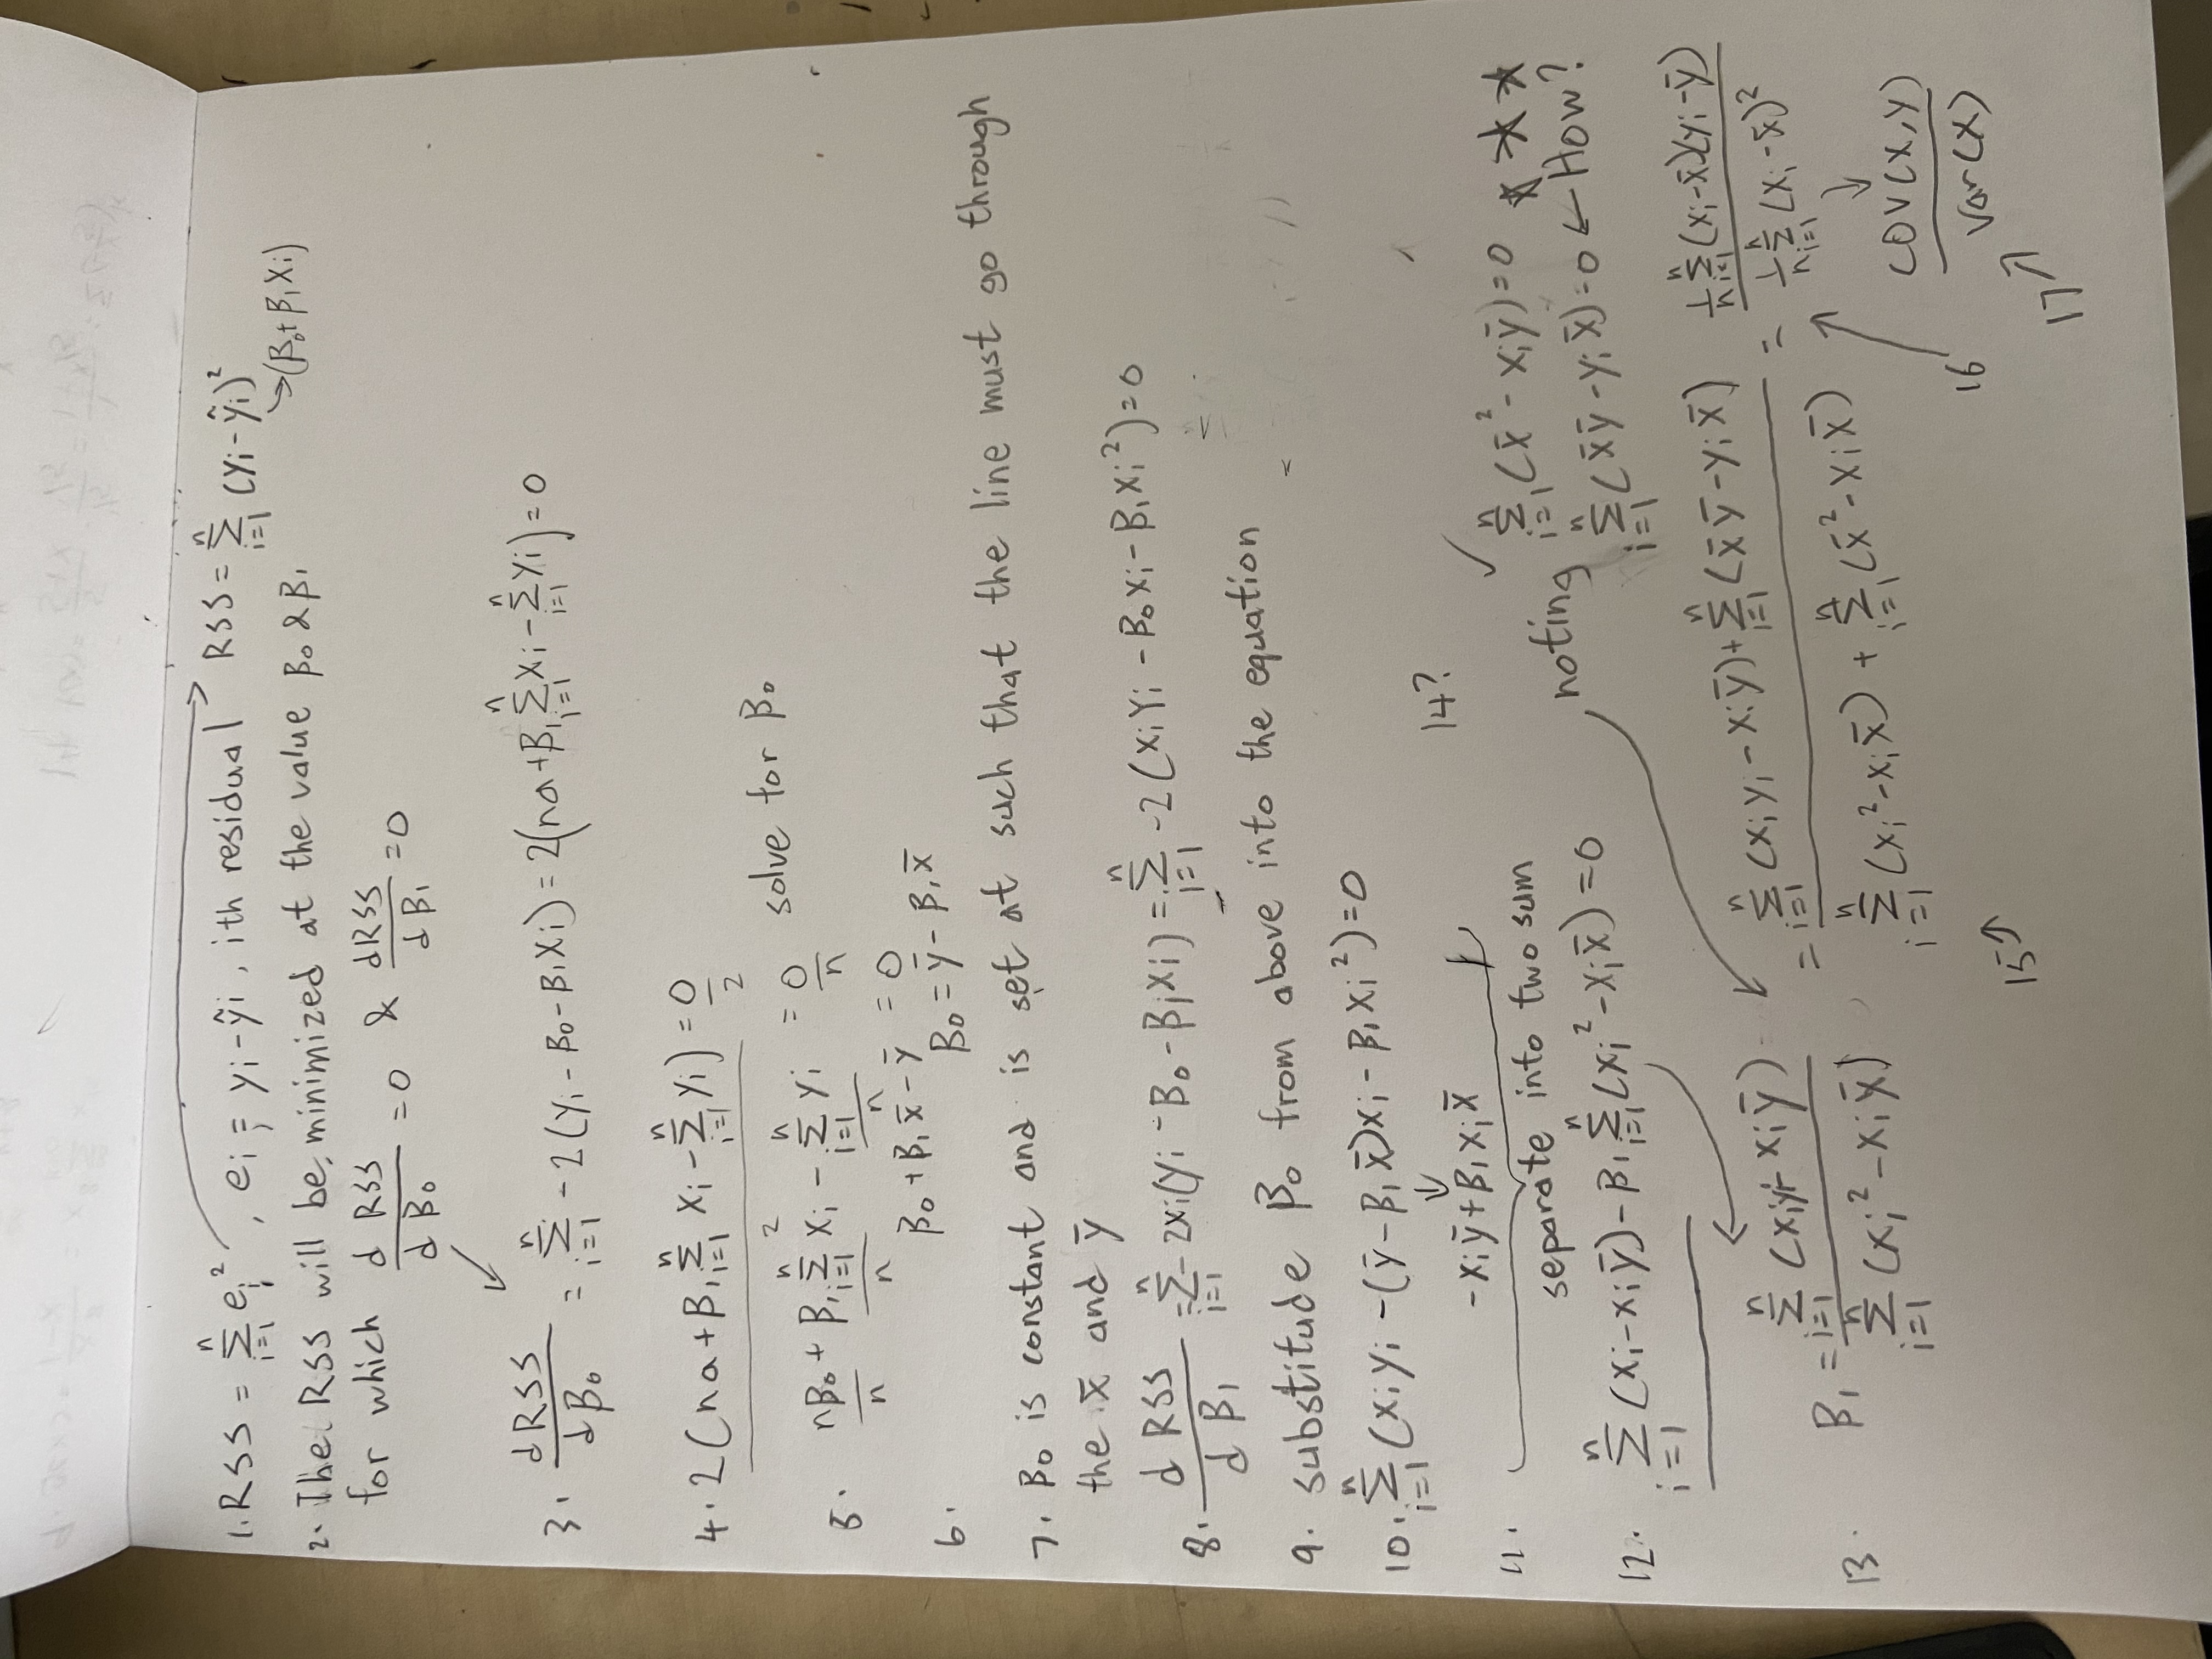 1. RSS = Σ_{i=1}^{n} e_i², e_i = y_i - ŷ_i, ith residual → RSS = Σ_{i=1}^{n} (y_i - ŷ_i)²
↘(β₀ + β₁x_i)
2. The RSS will be minimized at the value β₀ & β₁
for which d RSS / d β₀ = 0 & dRSS / d β₁ = 0
3. dRSS / dβ₀ = Σ_{i=1}^{n} -2(y_i - β₀ - β₁x_i) = 2(na + β₁ Σ_{i=1}^{n} x_i - Σ_{i=1}^{n} y_i) = 0
4. 2(na + β₁ Σ_{i=1}^{n} x_i - Σ_{i=1}^{n} y_i) / 2 = 0 / 2
5. nβ₀ / n + β₁ Σ_{i=1}^{n} x_i / n - Σ_{i=1}^{n} y_i / n = 0 / n solve for β₀
β₀ + β₁ x̄ - ȳ = 0
6. β₀ = ȳ - β₁ x̄
7. β₀ is constant and is set at such that the line must go through
the x̄ and ȳ
8. d RSS / d β₁ = Σ_{i=1}^{n} - 2x_i(y_i - β₀ - β₁x_i) = Σ_{i=1}^{n} -2(x_i y_i - β₀x_i - β₁x_i²) = 0
9. substitude β₀ from above into the equation
10. Σ_{i=1}^{n} (x_i y_i - (ȳ - β₁ x̄)x_i - β₁x_i²) = 0
↓
- x_i ȳ + β₁ x_i x̄
11. separate into two sum
14? ✓ Σ_{i=1}^{n} (x̄² - x_i ȳ) = 0 ★★★
noting Σ_{i=1}^{n} (x̄ȳ - y_i x̄) = 0 ← How?
12. Σ_{i=1}^{n} (x_i - x_i ȳ) - β₁ Σ_{i=1}^{n} (x_i² - x_i x̄) = 0
13. β₁ = Σ_{i=1}^{n} (x_i y_i - x_i ȳ) / Σ_{i=1}^{n} (x_i² - x_i x̄) = Σ_{i=1}^{n} (x_i y_i - x_i ȳ) + Σ_{i=1}^{n} (x̄ȳ - y_i x̄) / Σ_{i=1}^{n} (x_i² - x_i x̄) + Σ_{i=1}^{n} (x̄² - x_i x̄) = 1/n Σ_{i=1}^{n} (x_i - x̄)(y_i - ȳ) / 1/n Σ_{i=1}^{n} (x_i - x̄)²
↓
cov(x,y) / var(x)
15↗
16 ↗
17 ↗